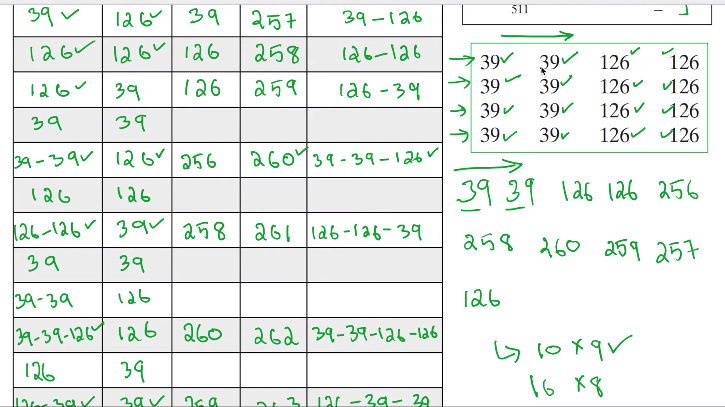 39 ✓ 126 ✓ 39 257 39-126
126 ✓ 126 ✓ 126 258 126-126
126 ✓ 39 126 259 126-39
39 39
39-39 ✓ 126 ✓ 256 260 ✓ 39-39-126 ✓
126 126
126-126 ✓ 39 ✓ 258 261 126-126-39
39 39
39-39 126
39-39-126 ✓ 126 260 262 39-39-126-126
126 39
126-39 ✓ 39 ✓ 259 263 126-39-39
511 -
→ 39 ✓ 39 ✓ 126 ✓ ✓ 126
→ 39 ✓ 39 ✓ 126 ✓ ✓ 126
→ 39 ✓ 39 ✓ 126 ✓ ✓ 126
→ 39 ✓ 39 ✓ 126 ✓ ✓ 126
39 39 126 126 256
258 260 259 257
126
↳ 10 × 9 ✓
16 × 8